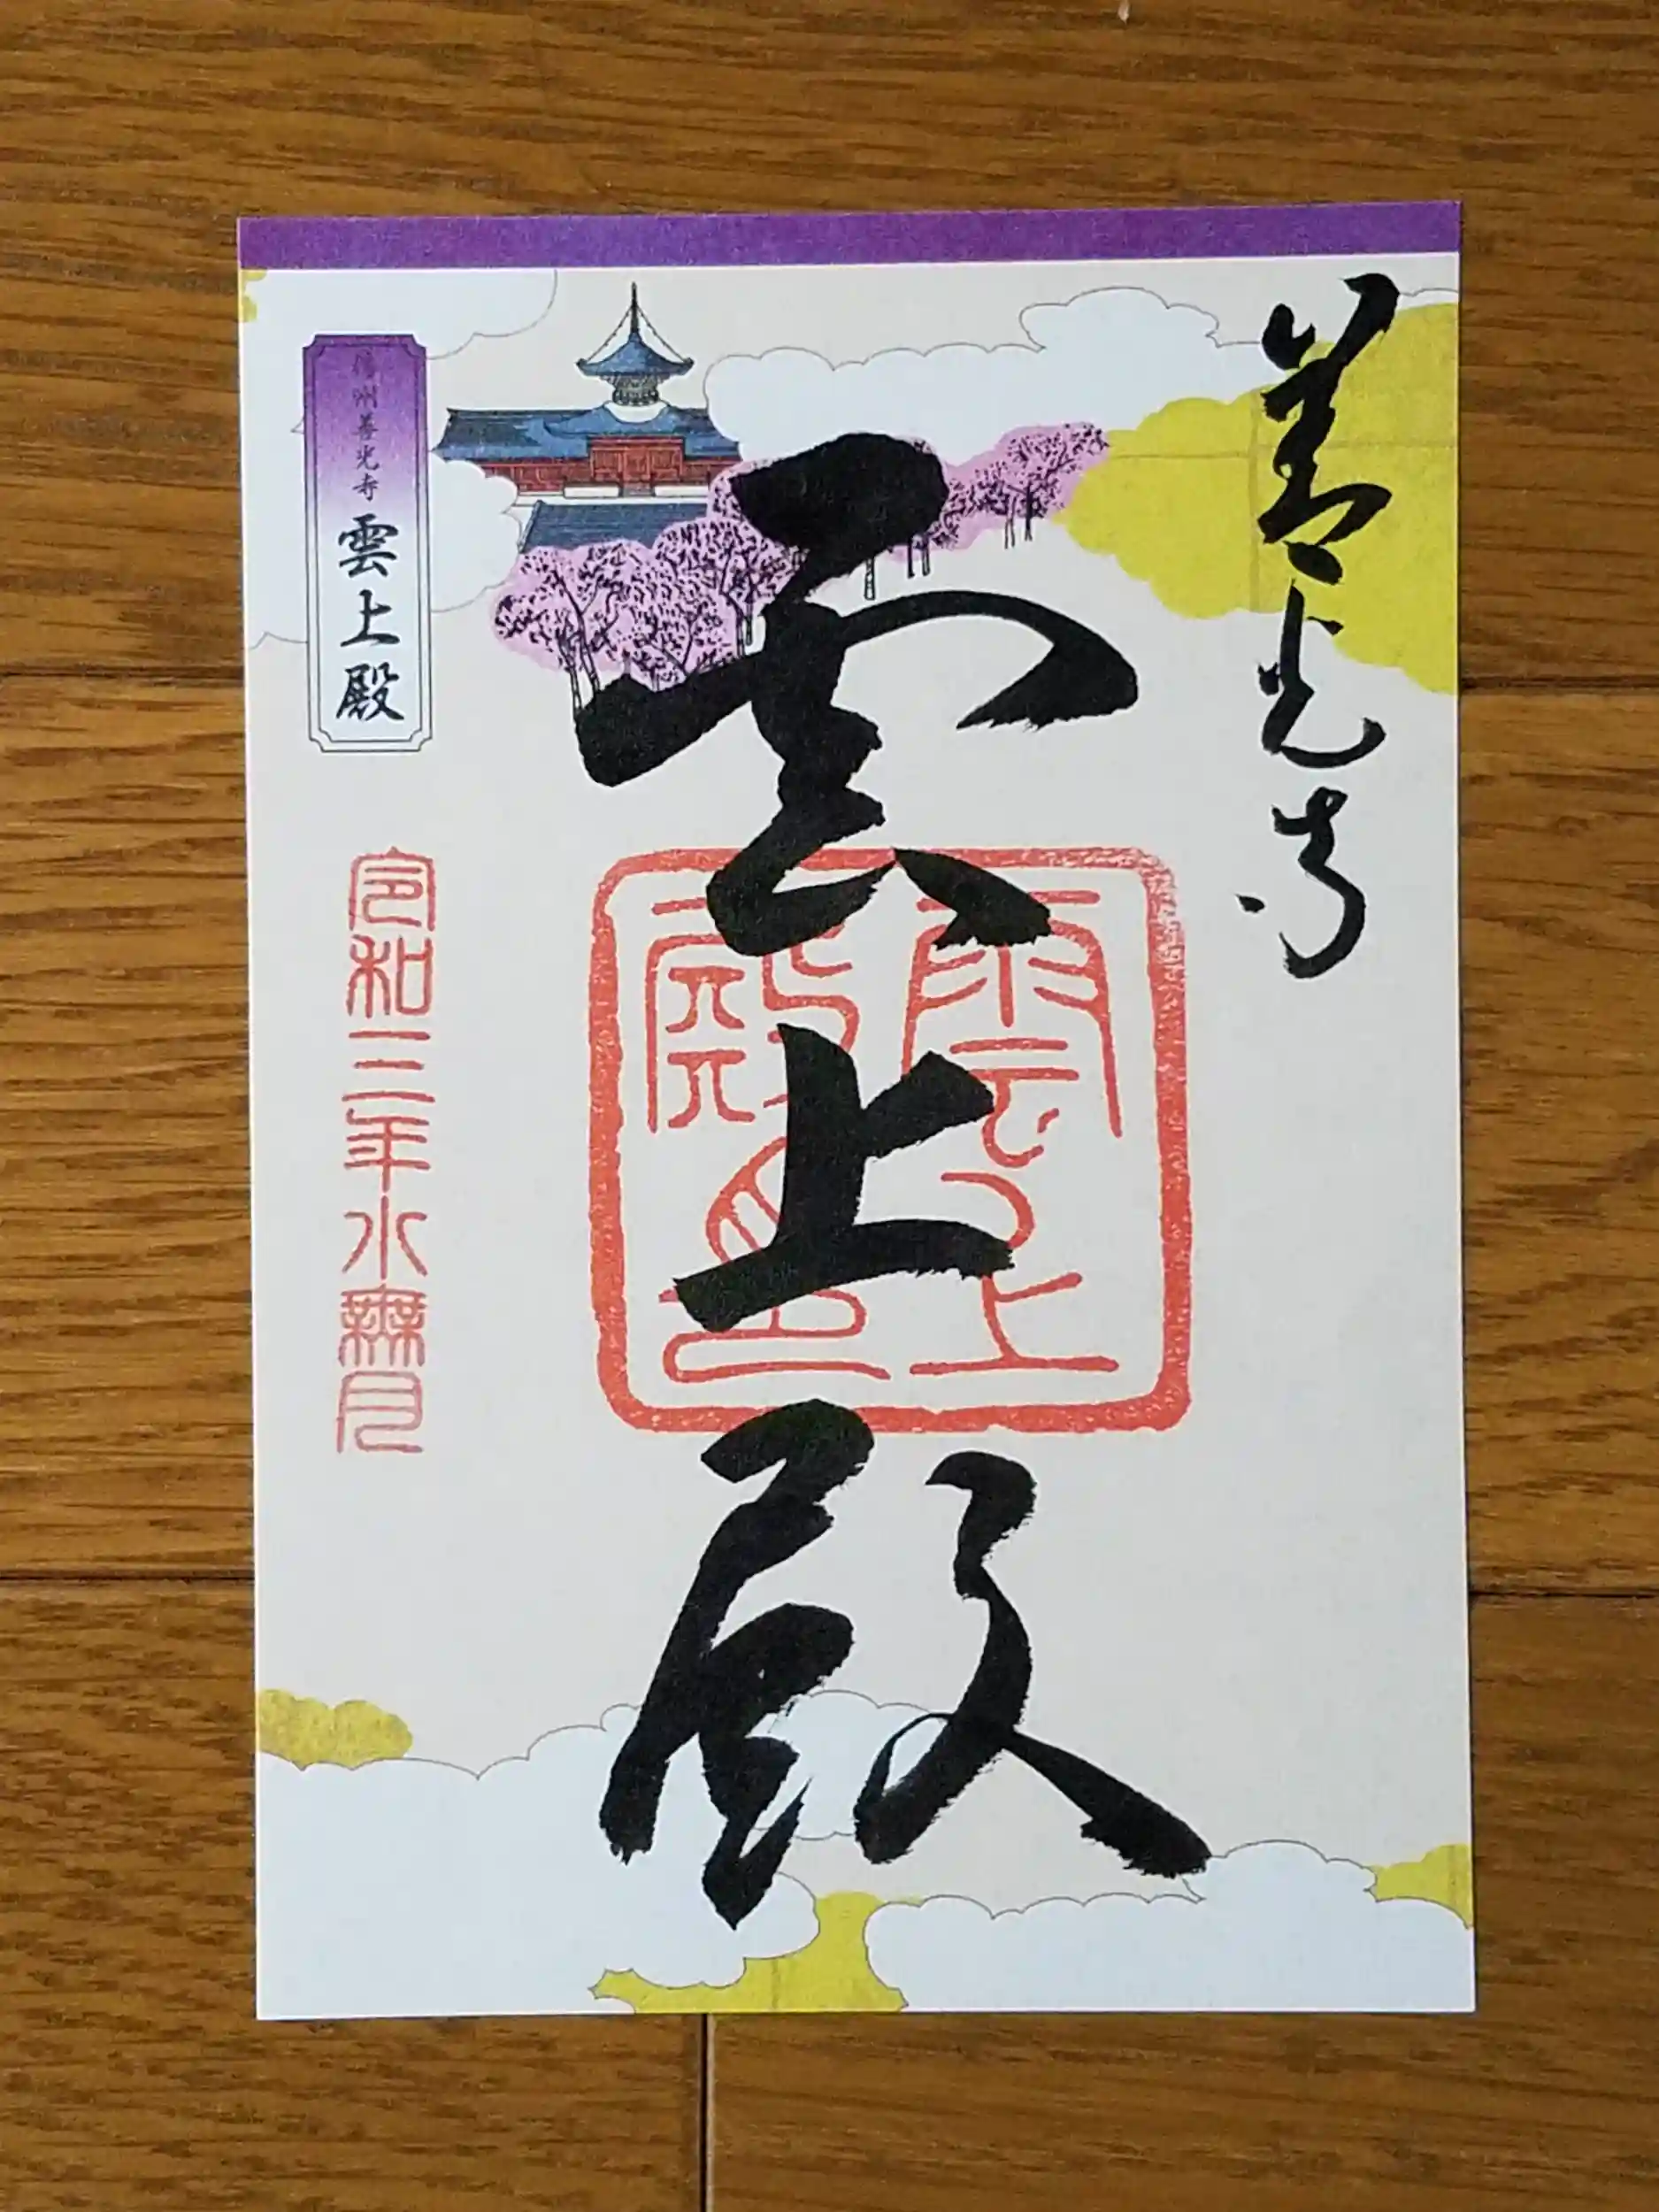 善光寺
雲上殿
雲上殿
信州善光寺 雲上殿
令和三年水無月